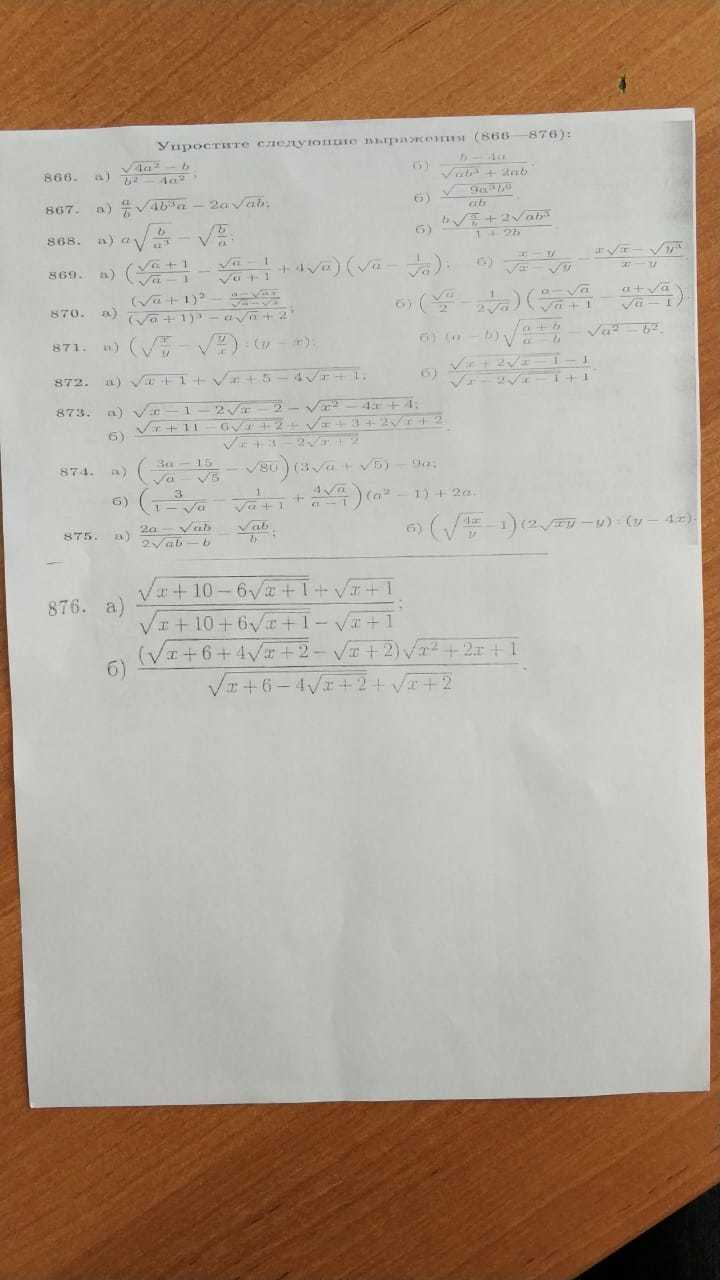 Упростите следующие выражения (866—876):
866. а) \frac{\sqrt{4a^2} - b}{b^2 - 4a^2}; б) \frac{b - 4a}{\sqrt{ab^3} + 2ab}.
867. а) \frac{a}{b}\sqrt{4b^3a} - 2a\sqrt{ab}; б) \frac{\sqrt{-9a^3b^6}}{ab}.
868. а) a\sqrt{\frac{b}{a^3}} - \sqrt{\frac{b}{a}}; б) \frac{b\sqrt{\frac{a}{b}} + 2\sqrt{ab^3}}{1 + 2b}.
869. а) \left(\frac{\sqrt{a} + 1}{\sqrt{a} - 1} - \frac{\sqrt{a} - 1}{\sqrt{a} + 1} + 4\sqrt{a}\right)\left(\sqrt{a} - \frac{1}{\sqrt{a}}\right); б) \frac{x - y}{\sqrt{x} - \sqrt{y}} - \frac{x\sqrt{x} - \sqrt{y^3}}{x - y}.
870. а) \frac{(\sqrt{a} + 1)^2 - \frac{a - \sqrt{ax}}{\sqrt{a} - \sqrt{x}}}{(\sqrt{a} + 1)^3 - a\sqrt{a} + 2}; б) \left(\frac{\sqrt{a}}{2} - \frac{1}{2\sqrt{a}}\right)\left(\frac{a - \sqrt{a}}{\sqrt{a} + 1} - \frac{a + \sqrt{a}}{\sqrt{a} - 1}\right).
871. а) \left(\sqrt{\frac{x}{y}} - \sqrt{\frac{y}{x}}\right) : (y - x); б) (a - b)\sqrt{\frac{a + b}{a - b}} - \sqrt{a^2 - b^2}.
872. а) \sqrt{x + 1} + \sqrt{x + 5 - 4\sqrt{x + 1}}; б) \frac{\sqrt{x + 2\sqrt{x - 1}} - 1}{\sqrt{x - 2\sqrt{x - 1}} + 1}.
873. а) \sqrt{x - 1 - 2\sqrt{x - 2}} - \sqrt{x^2 - 4x + 4};
б) \frac{\sqrt{x + 11 - 6\sqrt{x + 2}} + \sqrt{x + 3 + 2\sqrt{x + 2}}}{\sqrt{x + 3 - 2\sqrt{x + 2}}}.
874. а) \left(\frac{3a - 15}{\sqrt{a} - \sqrt{5}} - \sqrt{80}\right)(3\sqrt{a} + \sqrt{5}) - 9a;
б) \left(\frac{3}{1 - \sqrt{a}} - \frac{1}{\sqrt{a} + 1} + \frac{4\sqrt{a}}{a - 1}\right)(a^2 - 1) + 2a.
875. а) \frac{2a - \sqrt{ab}}{2\sqrt{ab} - b} - \frac{\sqrt{ab}}{b}; б) \left(\sqrt{\frac{4x}{y}} - 1\right)(2\sqrt{xy} - y) : (y - 4x).
876. а) \frac{\sqrt{x + 10 - 6\sqrt{x + 1}} + \sqrt{x + 1}}{\sqrt{x + 10 + 6\sqrt{x + 1}} - \sqrt{x + 1}};
б) \frac{(\sqrt{x + 6 + 4\sqrt{x + 2}} - \sqrt{x + 2})\sqrt{x^2 + 2x + 1}}{\sqrt{x + 6 - 4\sqrt{x + 2}} + \sqrt{x + 2}}.